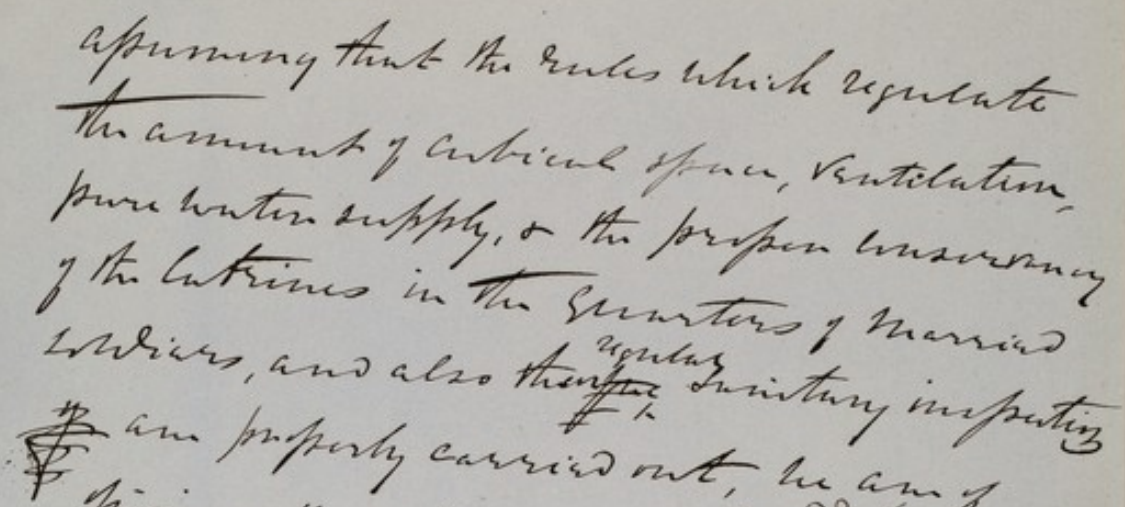 assuming that the rules which regulate
the amount of cubical space, ventilation,
pure water supply, & the proper conservancy
of the latrines in the Quarters of Married
regular
soldiers, and also the sanitary inspection
are properly carried out, we are of